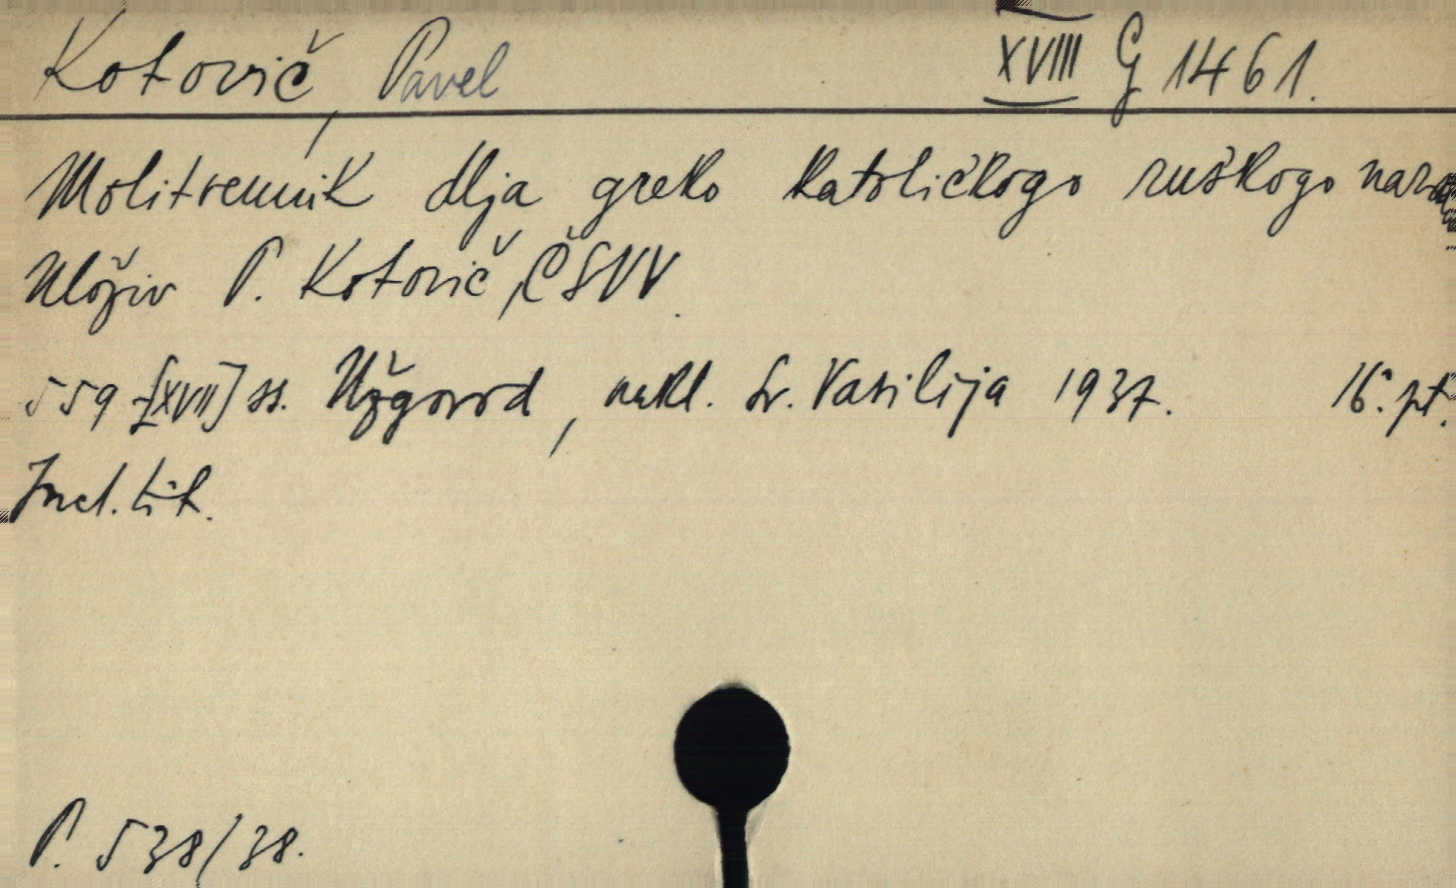 Kotovič, Pavel XVIII G 1461.
Molitvennik dlja greko katoličkogo ruśkogo naro
Uloživ P. Kotovič, ČSVV.
559 [XVII] ss. Užgorod, nakl. Sv. Vasilija 1937. 16° pt.
Incl. tit.
P. 538/38.